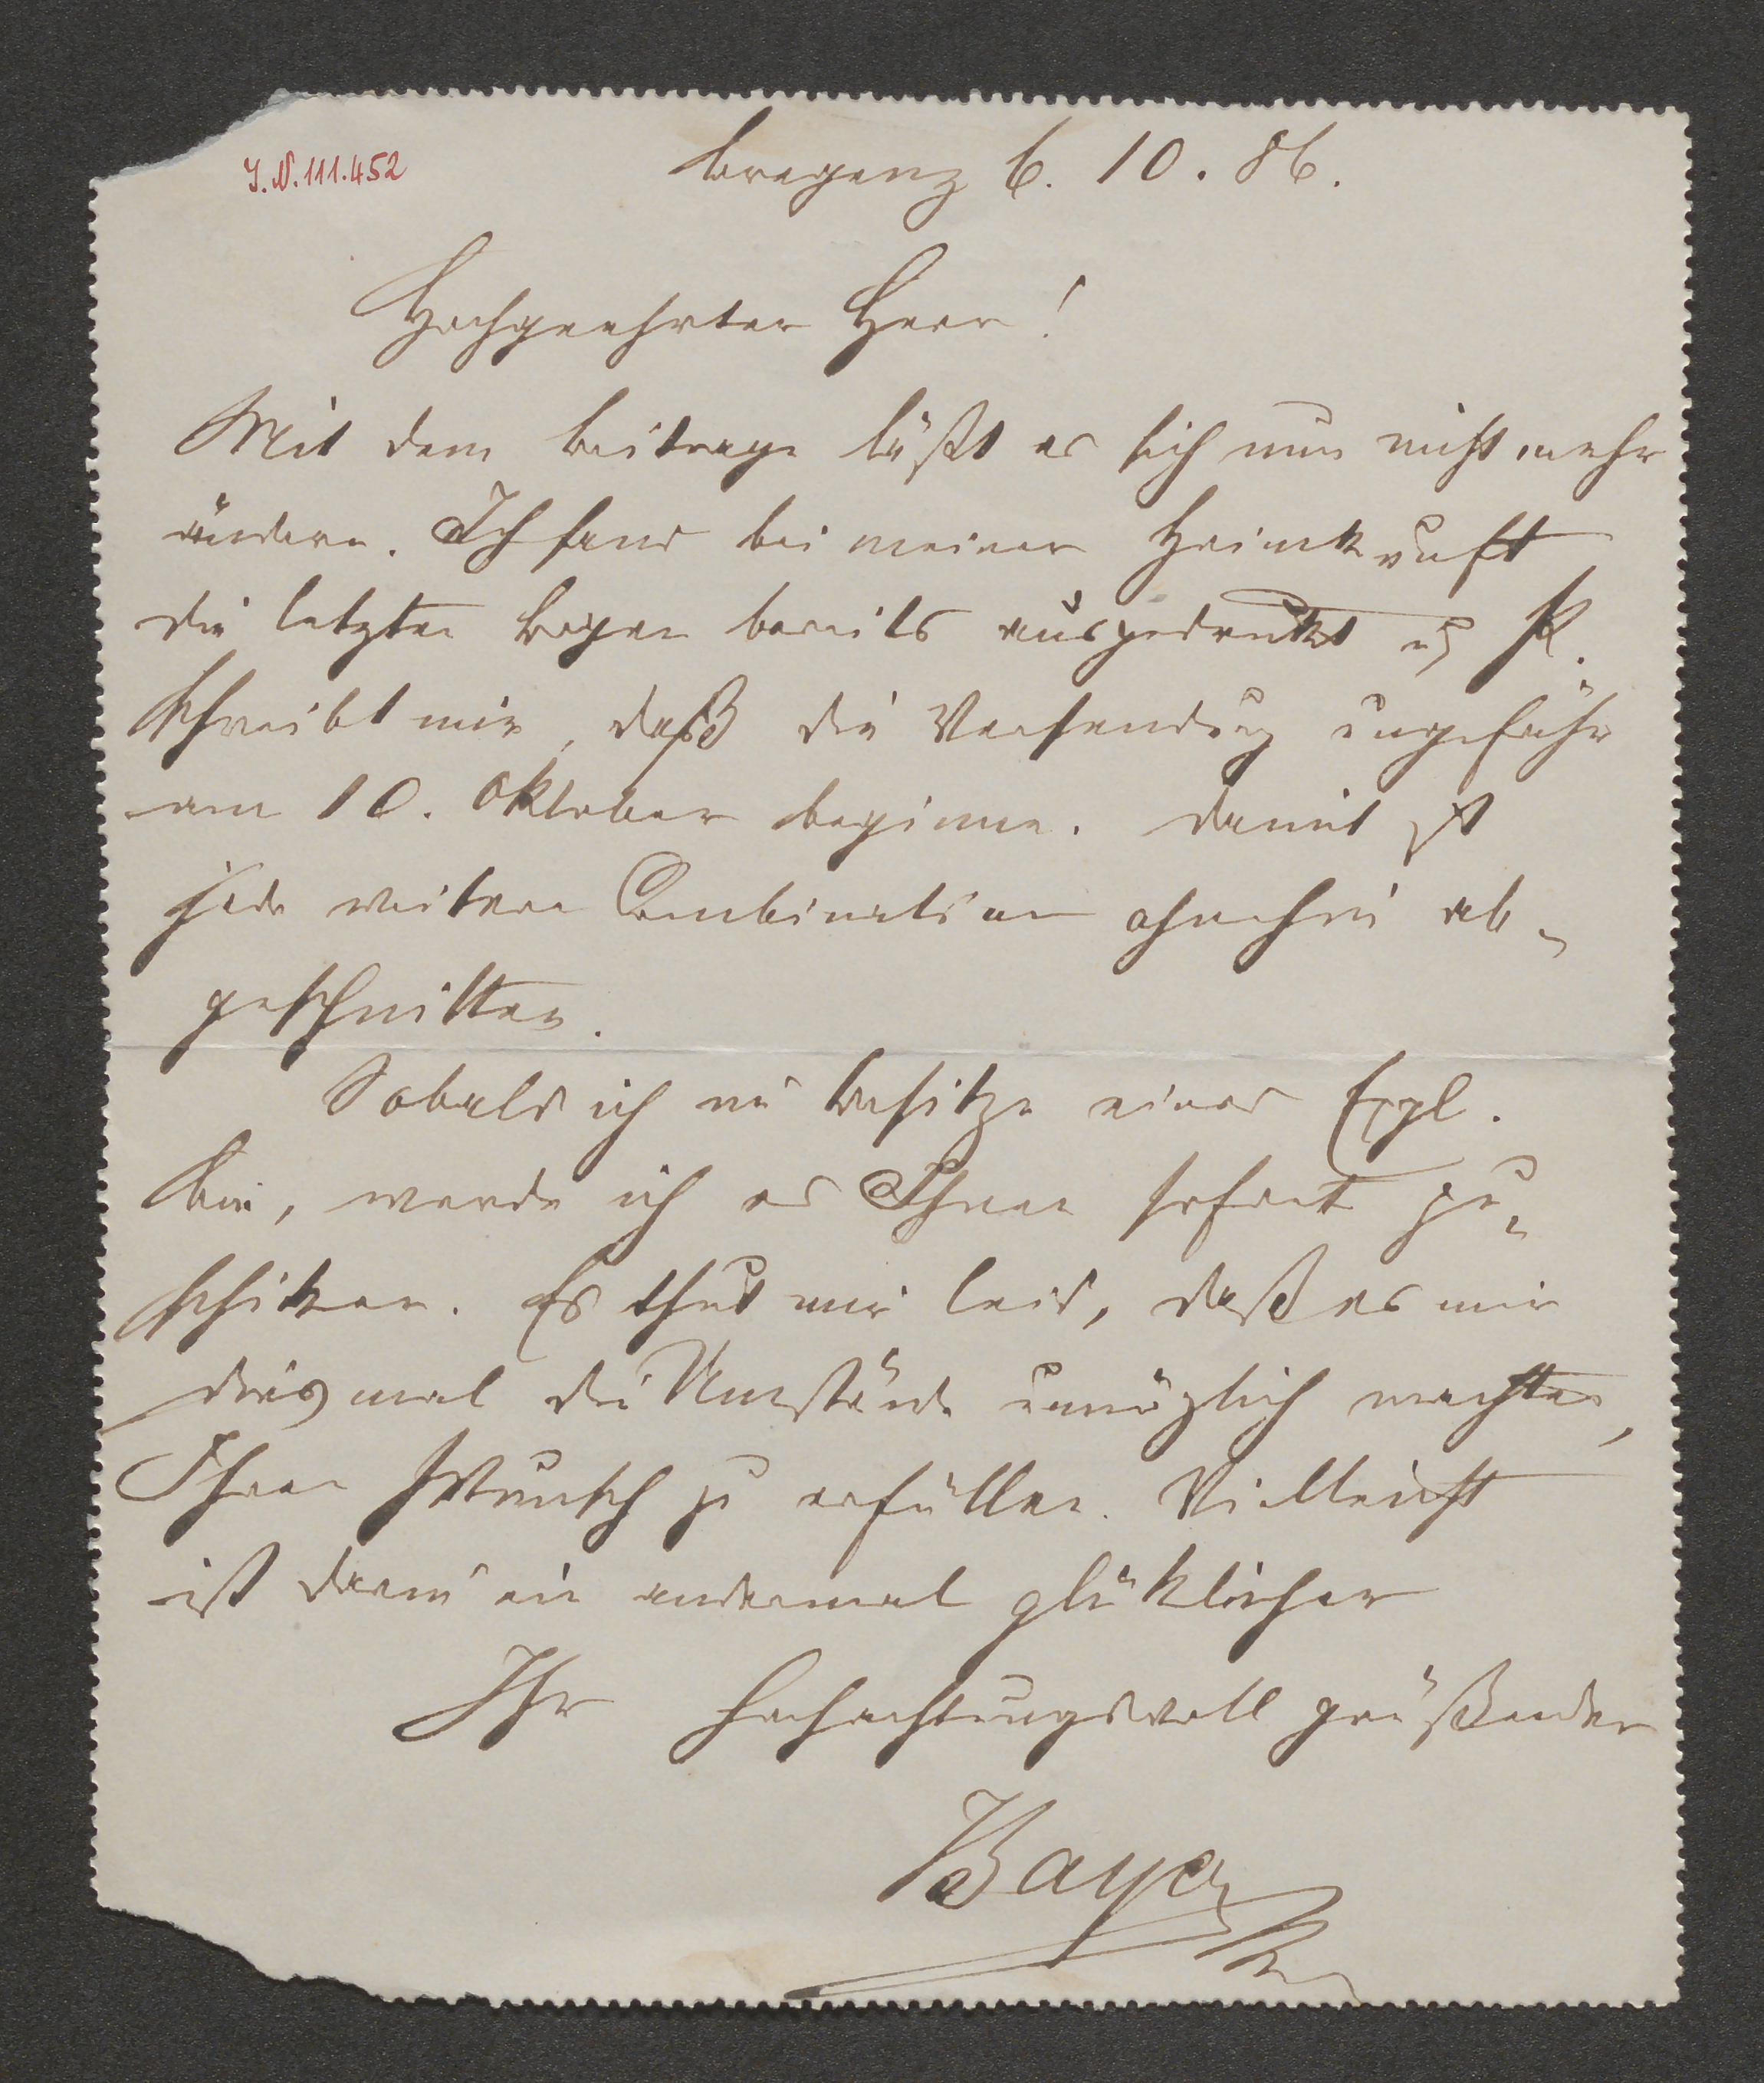 J.N. 111.452
Bregenz 6. 10. 86.
Hochgeehrter Herr!
Mit dem Beitrage läßt es sich nun nicht mehr
ändern. Ich fand bei meiner Heimkunft
die letzten Bogen bereits ausgedrukt u
schreibt mir, daß die Versendung ungefähr
am 10. Oktober beginne. Damit ist
jede weitere Combination ohnehin ab-
geschnitten.
Sobald ich im Besitze eines Expl.
bin, werde ich es Ihnen sofort zu-
schiken. Es thut mir leid, daß es mir
diesmal die Umstände unmöglich machten,
Ihren Wunsch zu erfüllen. Vielleicht
ist darin ein andermal glüklicher
Ihr hochachtungsvoll grüßender
Bayer